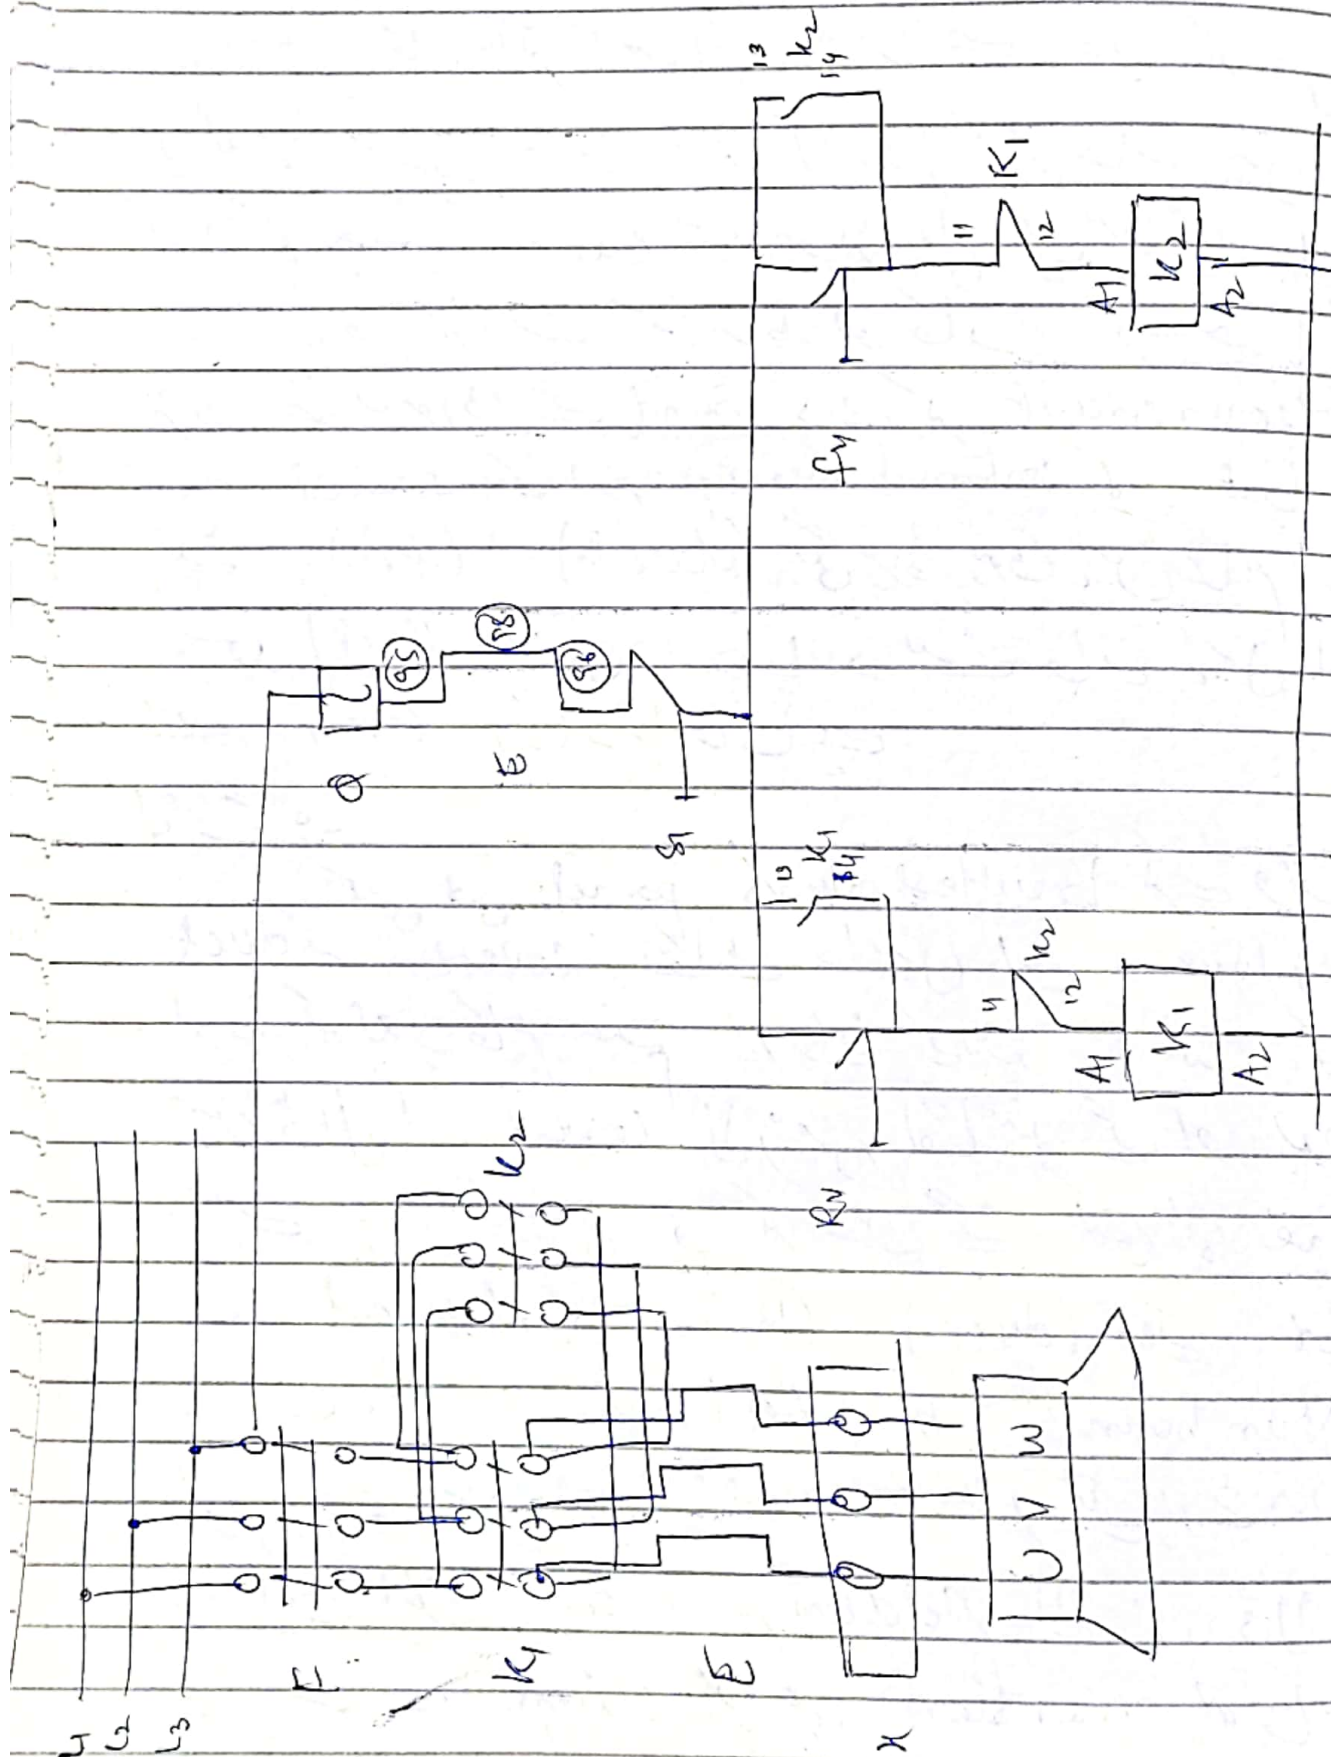 L1
L2
L3
F
K1
K2
E
X
U V W
Q
95
98
96
E
S1
Rv
13
K1
14
11
K2
12
A1
K1
A2
13
K2
14
11
K1
12
A1
K2
A2